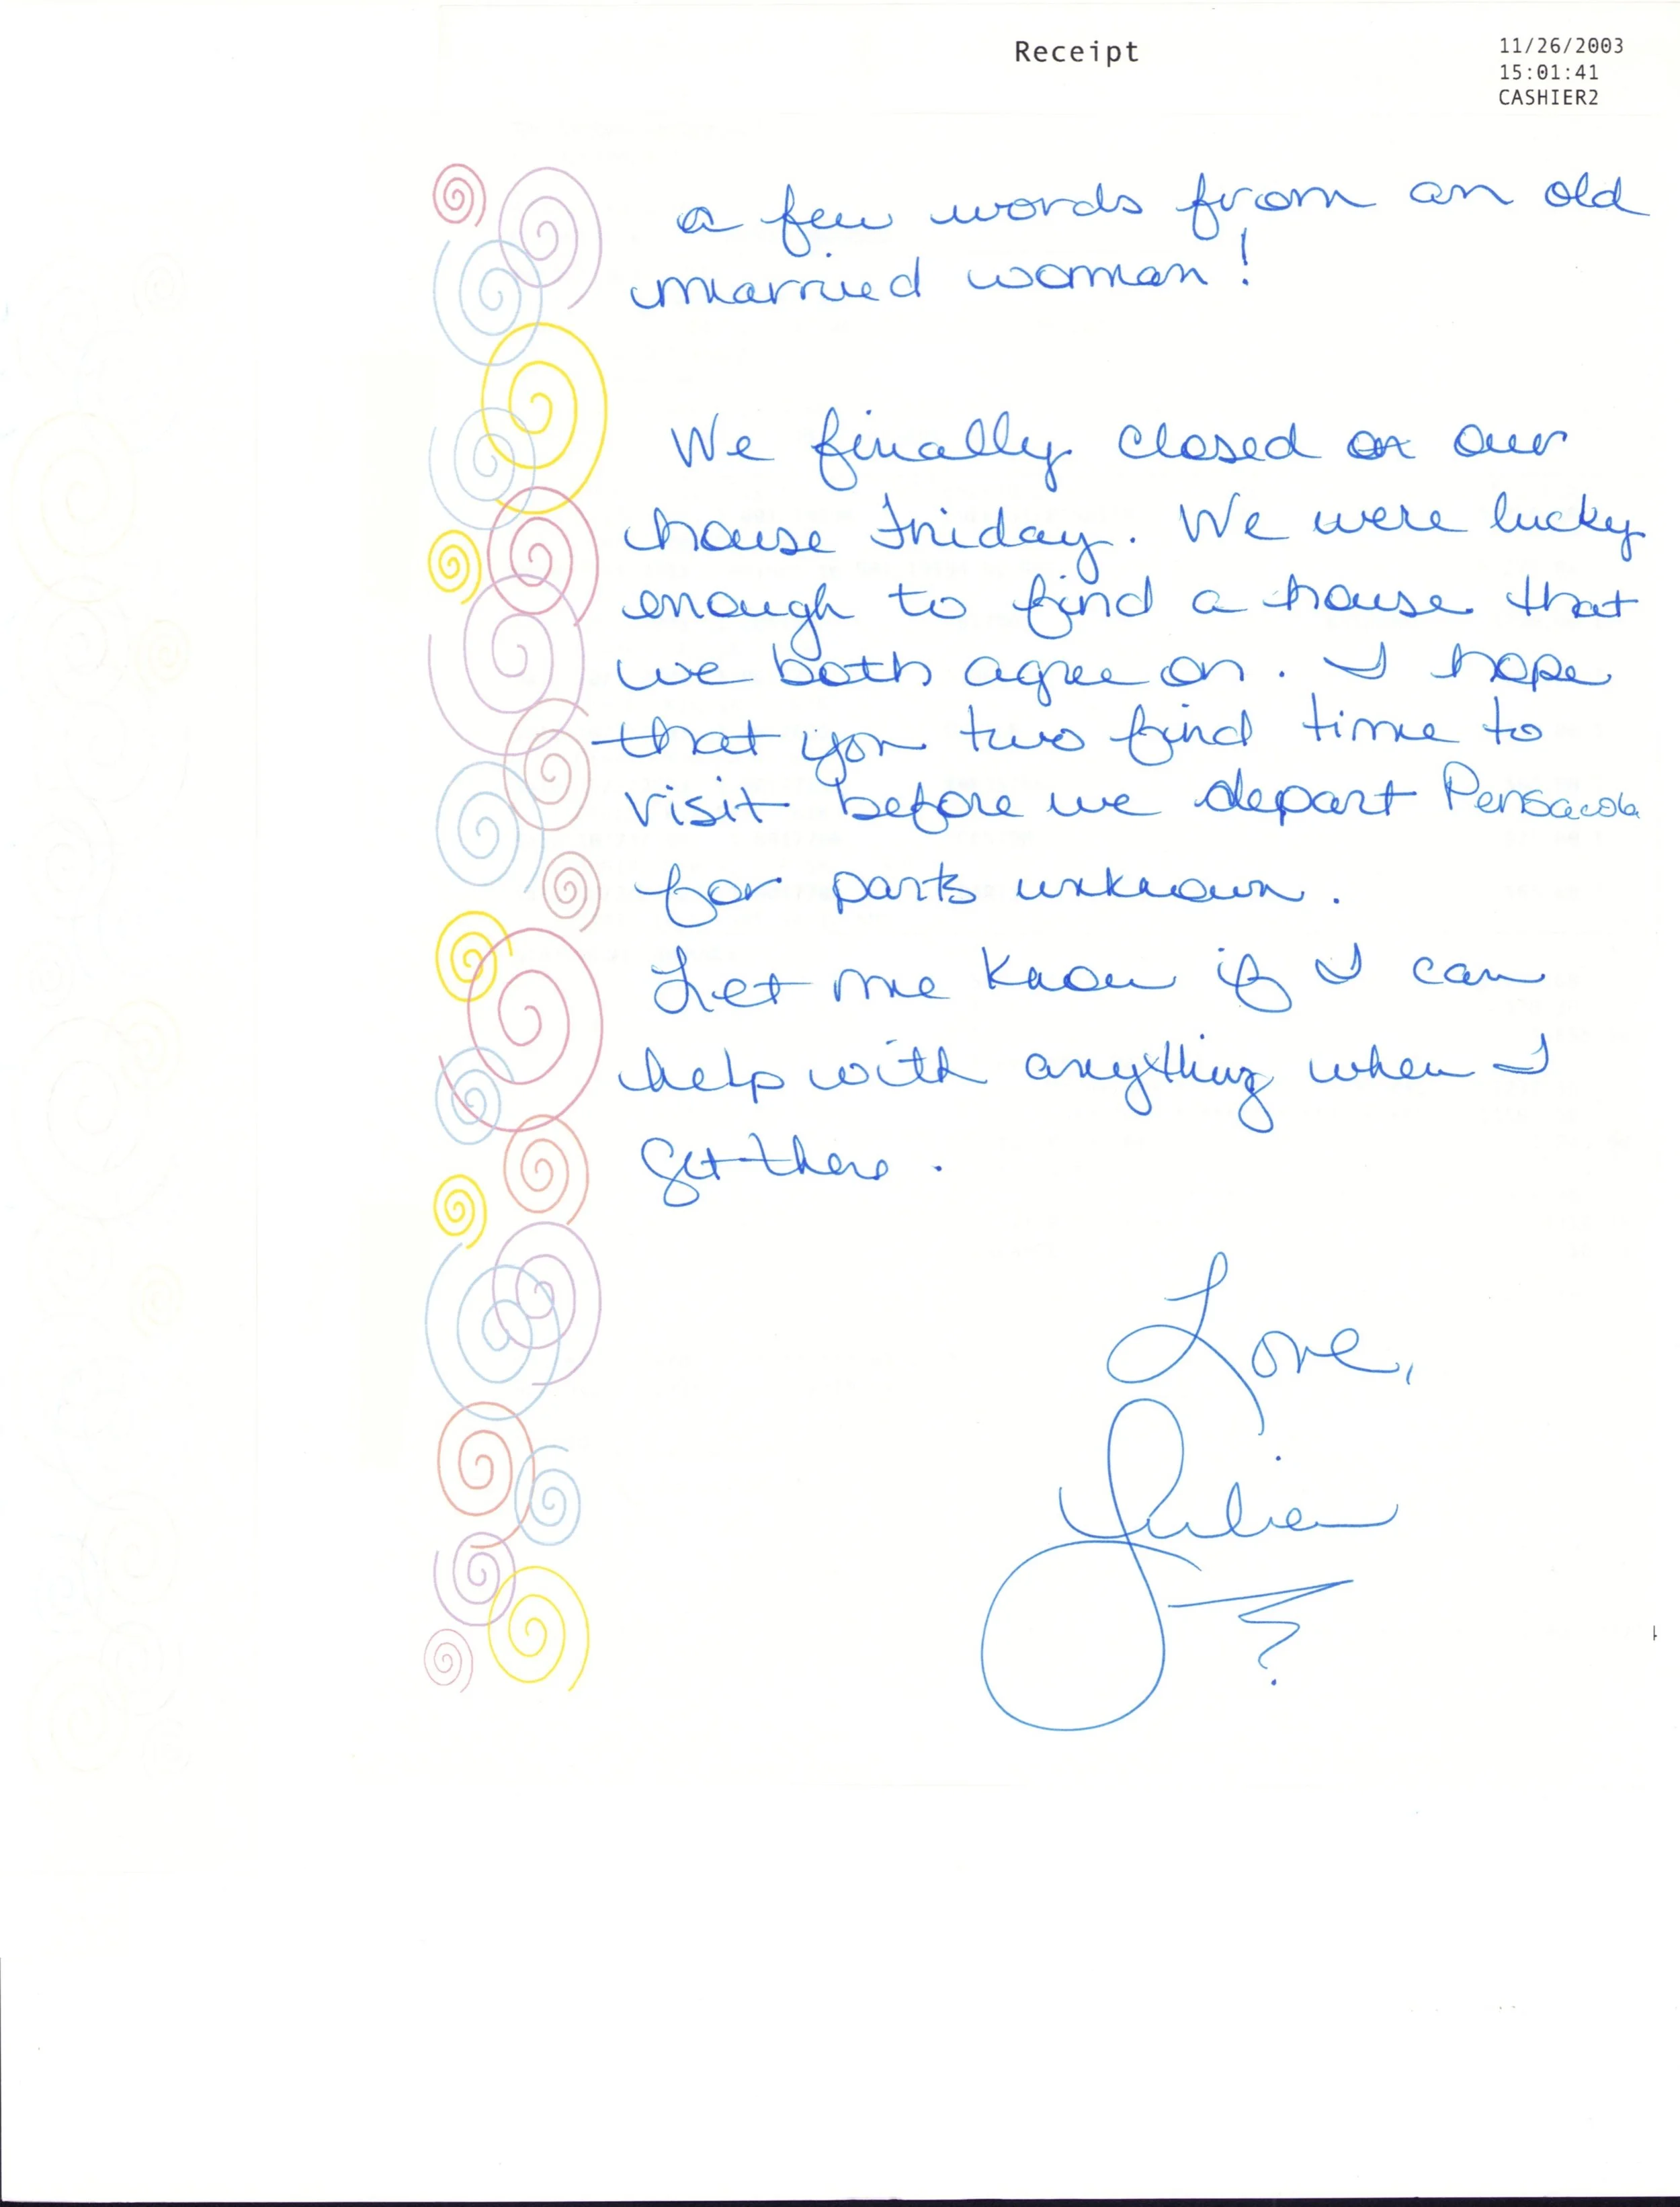 Receipt
11/26/2003
15:01:41
CASHIER2
a few words from an old
married woman!
We finally closed on our
house Friday. We were lucky
enough to find a house that
we both agree on. I hope
that you two find time to
visit before we depart Pensacola
for parts unknown.
Let me know if I can
help with anything when I
get there.
Love,
Julie